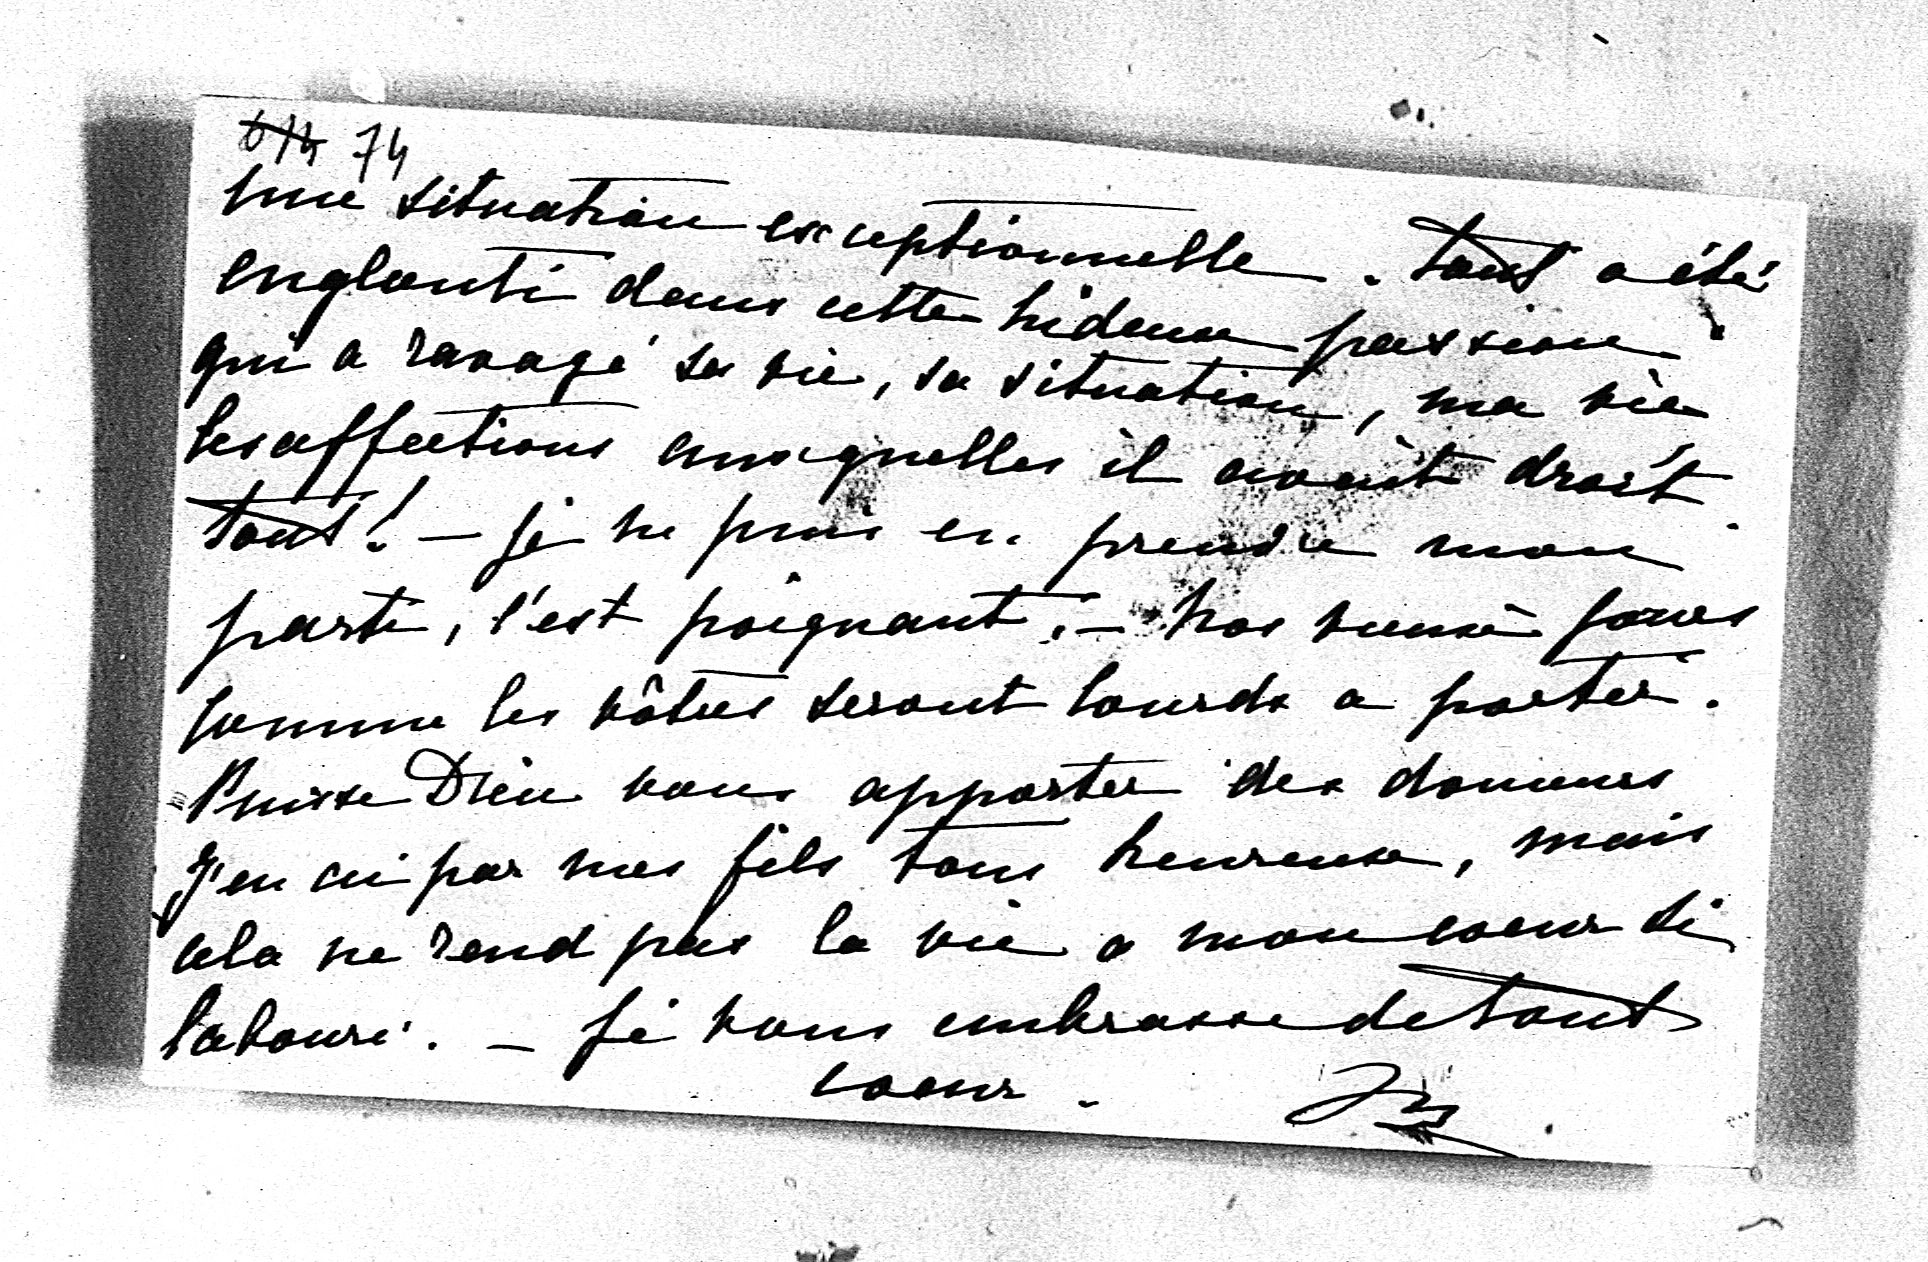 674 74
une situation exceptionnelle. tout a été
englouti dans cette hideuse passion
qui a ravagé sa vie, sa situation, ma vie
les affections auxquelles il avait droit
tout! — Je ne puis en prendre mon
parti, c'est poignant. — Nos vieux jours
comme les vôtres seront lourds a porter.
Puisse Dieu vous apporter des douceurs
J'en ai par mes fils tous heureux, mais
cela ne rend pas la vie a mon coeur si
labouré. — Je vous embrasse de tout
coeur.